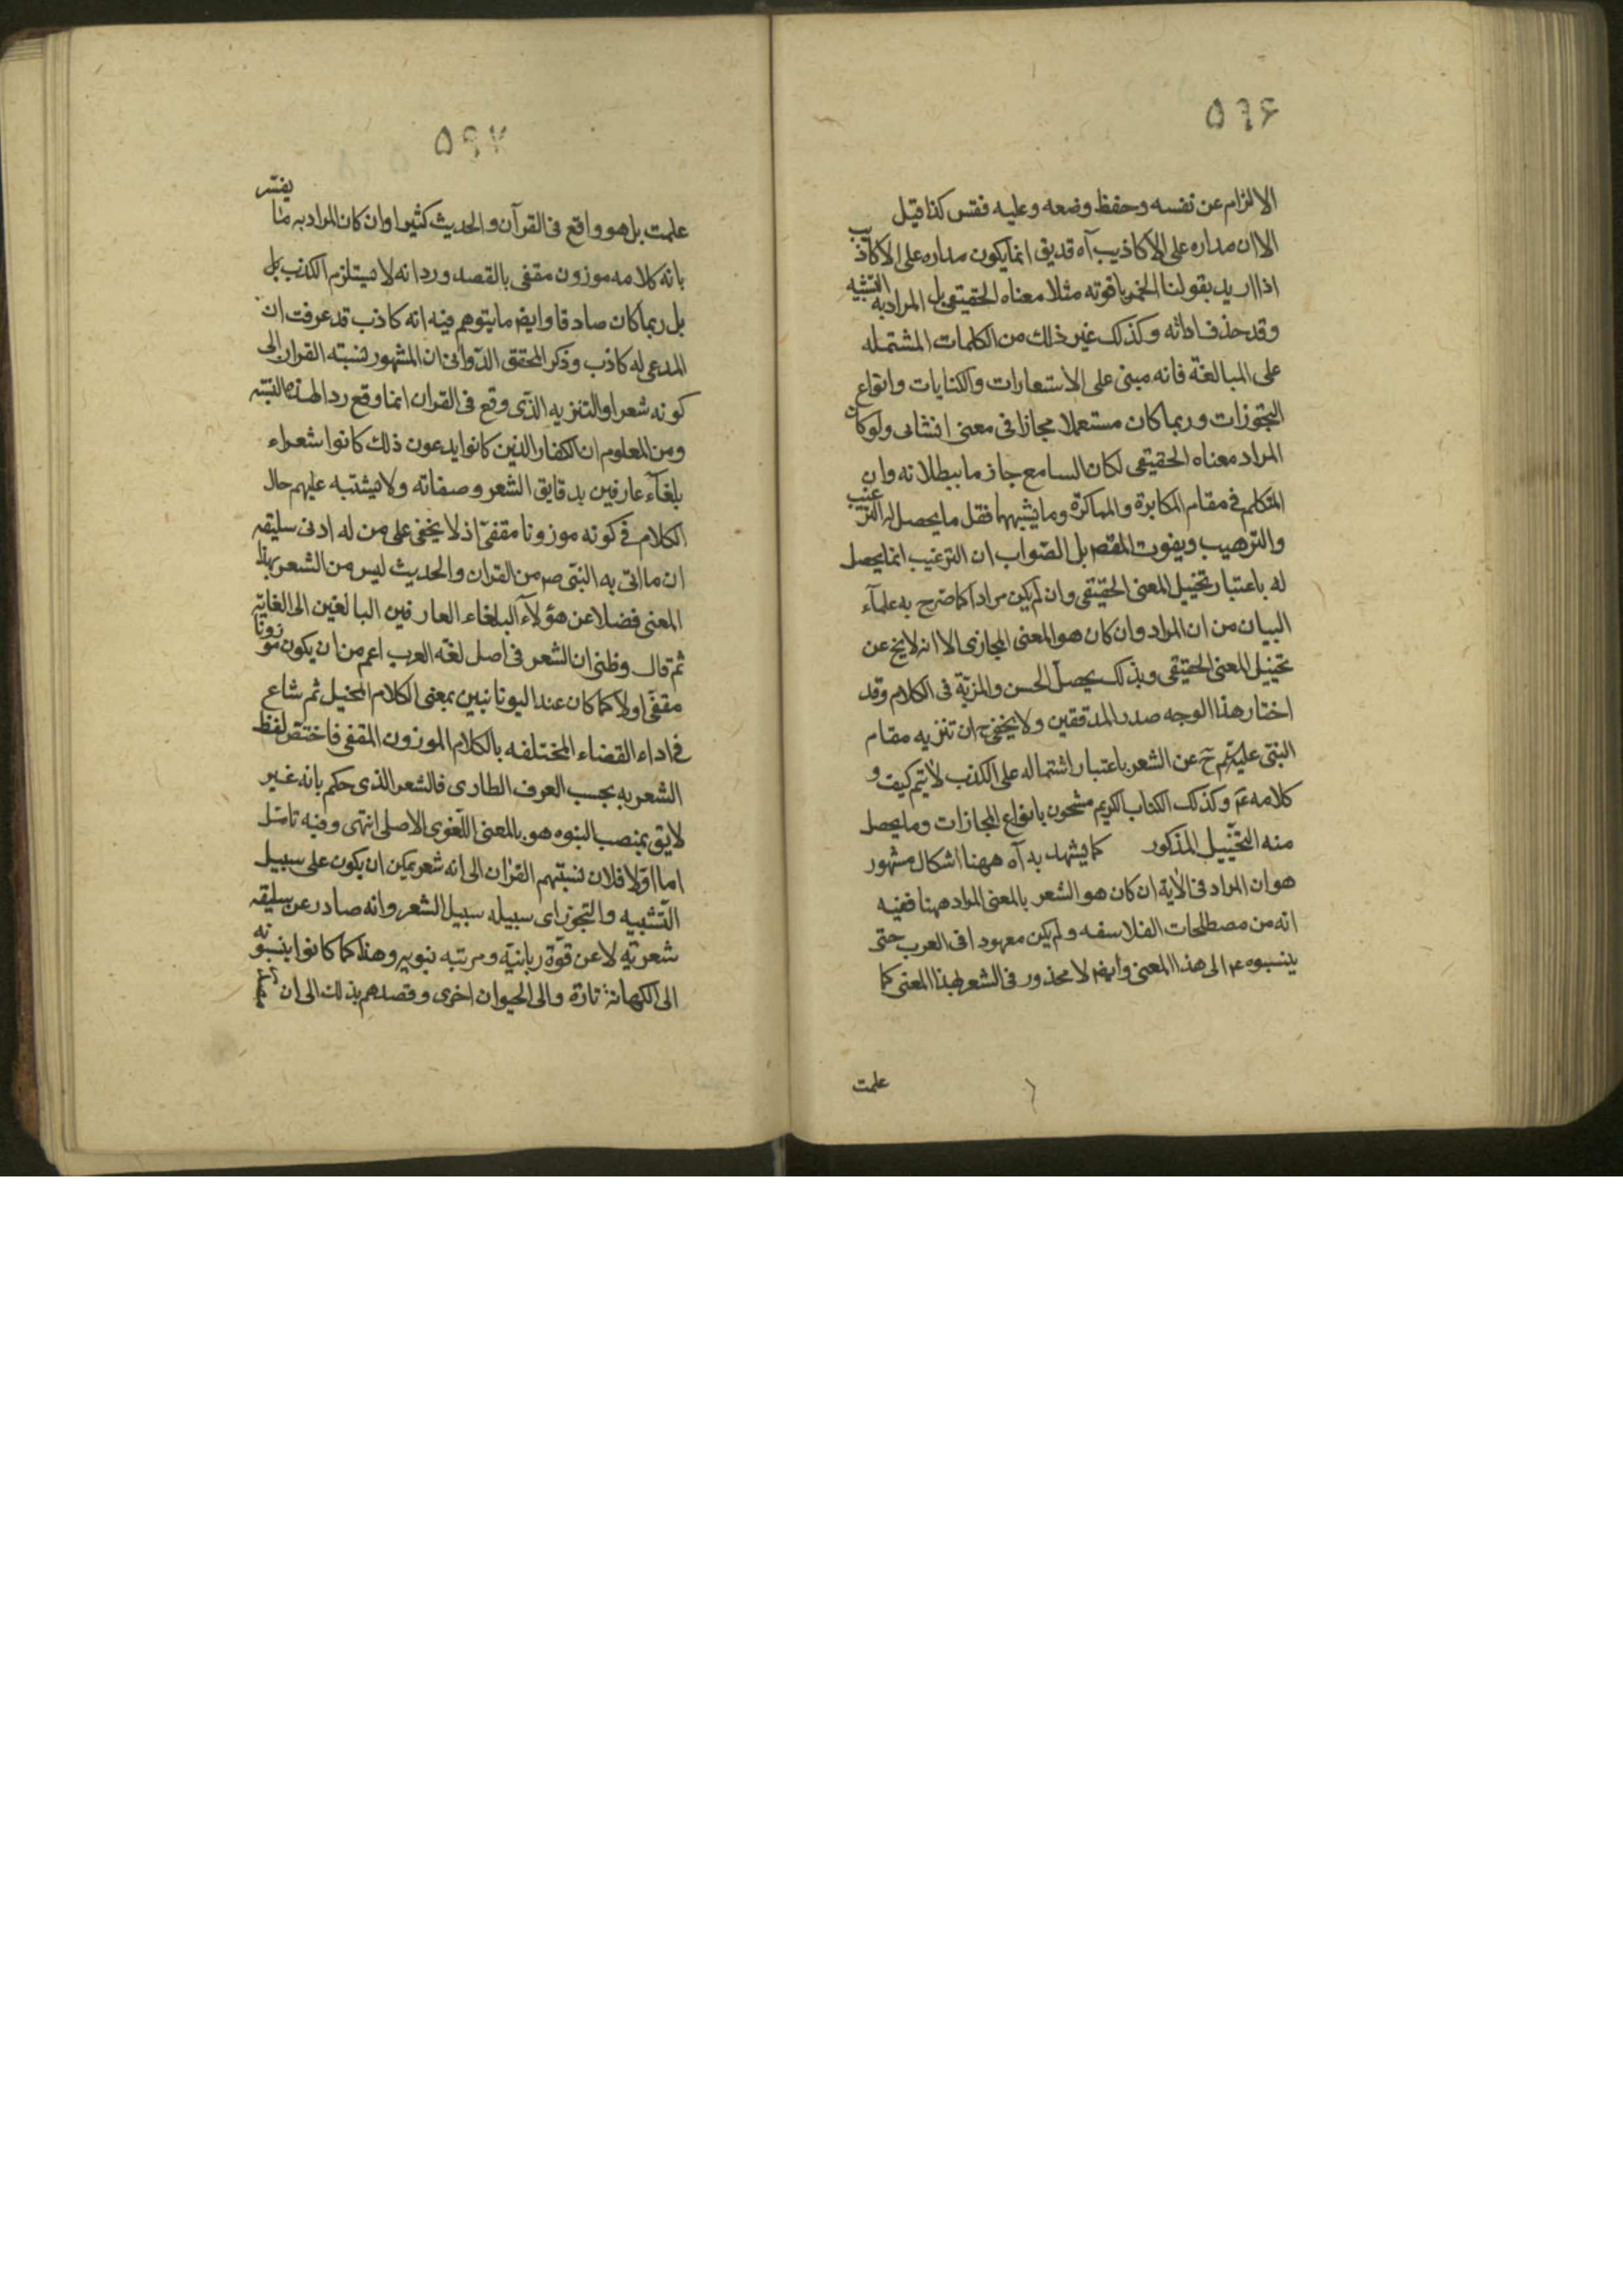 ۵۹۶
الالزام عن نفسه وحفظ وضعه وعليه فقس كذا قيل
الا ان مداره على الاكاذيب آه قديق انما يكون مداره على الاكاذيب
اذا اريد بقولنا الخمر ياقوته مثلا معناه الحقيقى بل المراد به التشبيه
وقد حذف اداته وكذلك غير ذلك من الكلمات المشتمله
على المبالغة فانه مبنى على الاستعارات والكنايات وانواع
التجوزات وربما كان مستعملا مجازا فى معنى انشائى ولو كان
المراد معناه الحقيقى لكان السامع جازما ببطلانه وان
المتكلم فى مقام المكابرة وما يشبهها فقل ما يحصل له الترغيب
والترهيب ويفوت المقصم بل الصواب ان الترغيب انما يحصل
له باعتبار تخييل المعنى الحقيقى وان لم يكن مرادا كما صرح به علمآء
البيان من ان المراد وان كان هو المعنى المجازى الا انه لا يخ عن
تخييل المعنى الحقيقى وبذلك يحصل الحسن والمزية فى الكلام وقد
اختار هذا الوجه صدر المدققين ولا يخفى ح ان تنزيه مقام
النبى عليه عن الشعر باعتبار اشتماله على الكذب لا يتم كيف و
كلامه عم وكذلك الكتاب الكريم مشحون بانواع المجازات وما يحصل
منه التخييل المذكور كما يشهد به آه ههنا اشكال مشهور
هو ان المراد فى الاية ان كان هو الشعر بالمعنى المراد ههنا ففيه
انه من مصطلحات الفلاسفه ولم يكن معهودا فى العرب حتى
ينسبوه ع الى هذا المعنى وايضا لا محذور فى الشعر بهذا المعنى كما
علمت
۵۹۷
علمت بل هو واقع فى القرآن والحديث كثيرا وان كان المراد به ما يفسر
بانه كلامه موزون مقفى بالقصد ورد انه لا يستلزم الكذب بل
بل ربما كان صادقا وايضا ما يتوهم فيه انه كاذب قد عرفت ان
المدعى له كاذب وذكر المحقق الدوانى ان المشهور نسبته القران الى
كونه شعرا والتنزيه الذى وقع فى القران انما وقع ردا لهذه النسبته
ومن المعلوم ان الكفار الذين كانوا يدعون ذلك كانوا شعراء
بلغآء عارفين بدقايق الشعر وصفاته ولا يشتبه عليهم حال
الكلام فى كونه موزونا مقفى اذ لا يخفى على من له ادنى سليقه
ان ما اتى به النبى صم من القران والحديث ليس من الشعر بهذا
المعنى فضلا عن هؤلآء البلغاء العارفين البالغين الى الغايته
ثم قال وظنى ان الشعر فى اصل لغه العرب اعم من ان يكون موزونا
مقفى اولا كما كان عند اليونانيين بمعنى الكلام المخيل ثم شاع
فى اداء القضاء المختلفه بالكلام الموزون المقفى فاختص لفظ
الشعر به بحسب العرف الطارى فالشعر الذى حكم بانه غير
لايق بمنصب النبوه هو بالمعنى اللغوى الاصلى انتهى وفيه تامل
اما اولا فلان نسبتهم القران الى انه شعر يمكن ان يكون على سبيل
التشبيه والتجوز اى سبيله سبيل الشعر وانه صادر عن سليقه
شعرية لا عن قوة ربانية ومرتبه نبويه وهذا كما كانوا ينسبونه
الى الكهانة تارة والى الحيوان اخرى وقصدهم بذلك الى ان